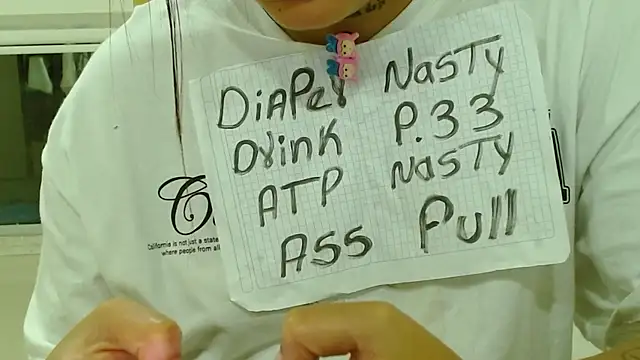 DiAPer NasTy
Drink P.33
ATP NasTy
Ass Pull
California is not just a state
where people from all